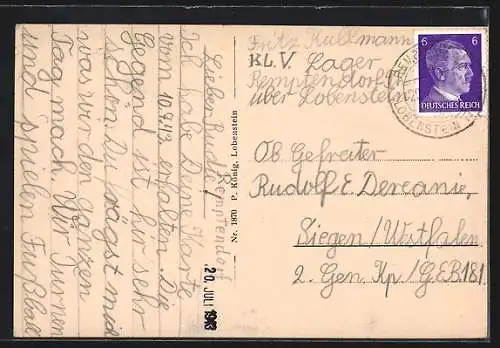 Fritz Kullmann
KL. V. Lager
Remptendorf
über Lobenstein
6 6
DEUTSCHES REICH
LOBENSTEIN
Ob. Gefreiter
Rudolf E. Dereanie,
Siegen/Westfalen
2. Gen. Kp/G.E.B.181
Nr. 1870 P. König, Lobenstein
Remptendorf
20. JULI 1943
Lieber Rudi!
Ich habe Deine Karte
vom 10.7.43 erhalten. Die
Gegend ist hir sehr
schön. Du frägst mich
was wir den ganzen
Tag mach. Wir Turnen
und spielen Fußball